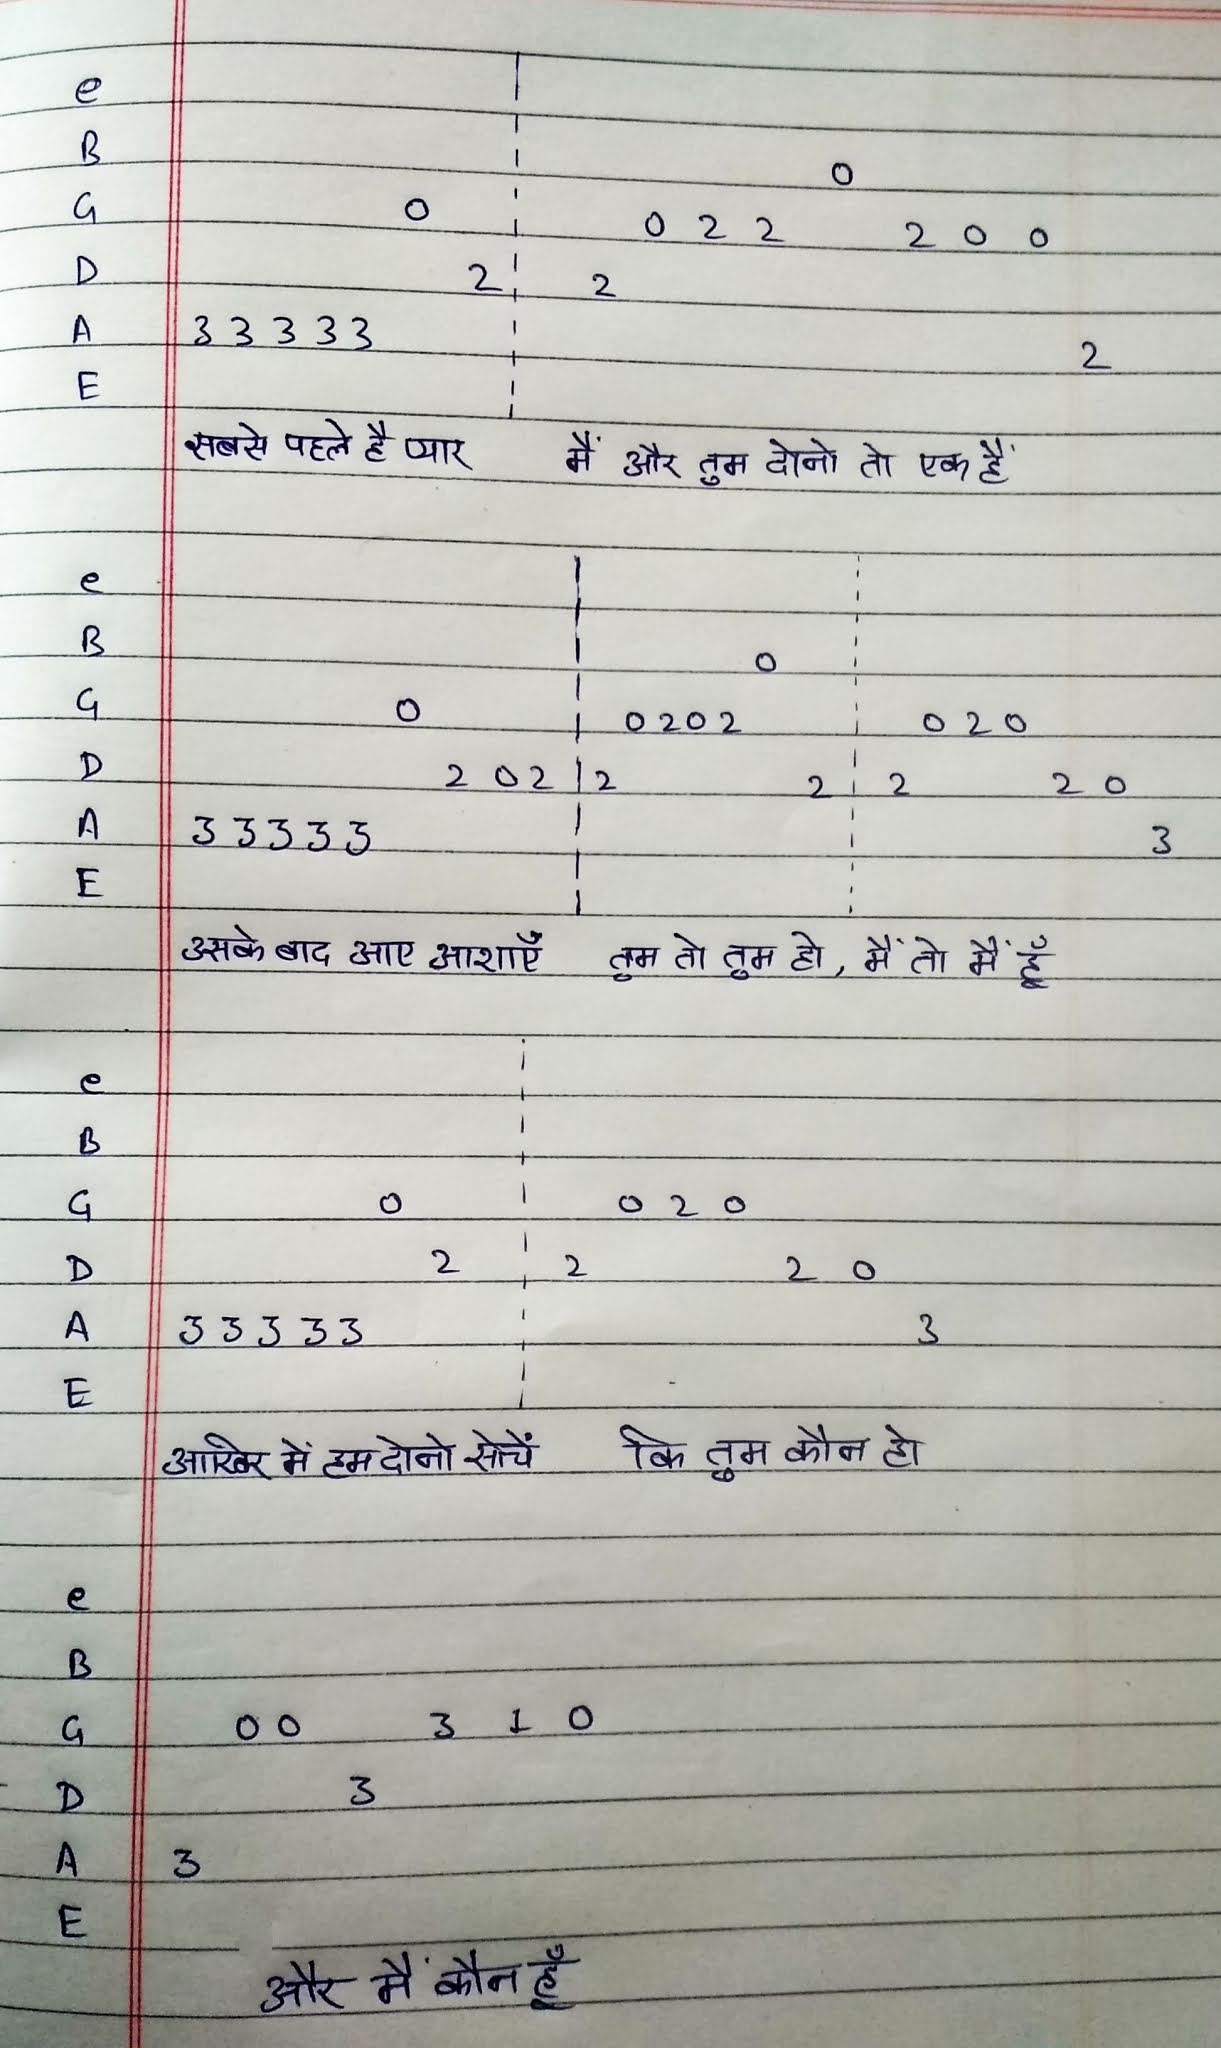 e
B 0
G 0 0 2 2 2 0 0
D 2 2
A 3 3 3 3 3 2
E
सबसे पहले है प्यार मैं और तुम दोनो तो एक हैं
e
B 0
G 0 0 2 0 2 0 2 0
D 2 0 2 2 2 2 2 0
A 3 3 3 3 3 3
E
उसके बाद आए आशाएँ तुम तो तुम हो, मैं तो मैं हूँ
e
B
G 0 0 2 0
D 2 2 2 0
A 3 3 3 3 3 3
E
आखिर में हम दोनो सोचें कि तुम कौन हो
e
B
G 0 0 3 1 0
D 3
A 3
E
और मैं कौन हूँ